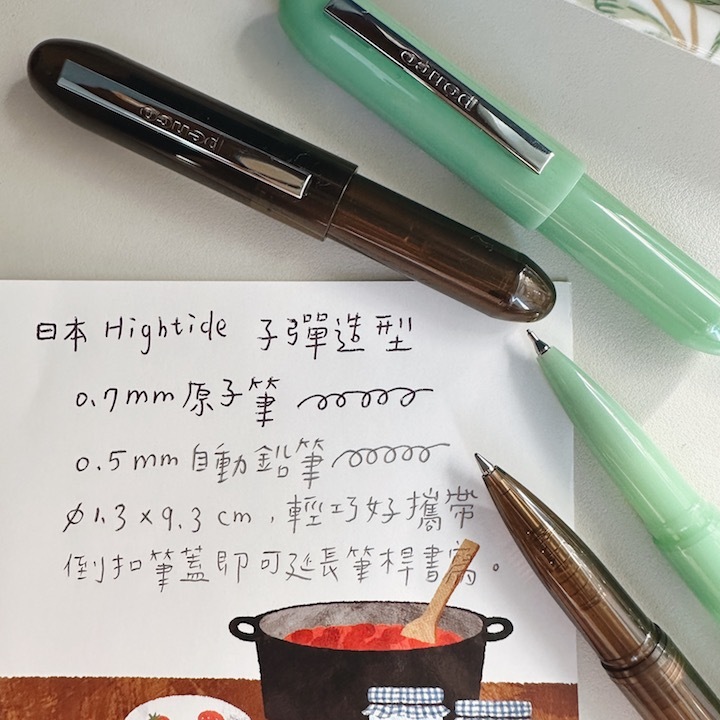 penco
penco
日本 Hightide 子彈造型
0.7mm 原子筆
0.5mm 自動鉛筆
ø1.3 x 9.3 cm，輕巧好攜帶
倒扣筆蓋即可延長筆桿書寫。